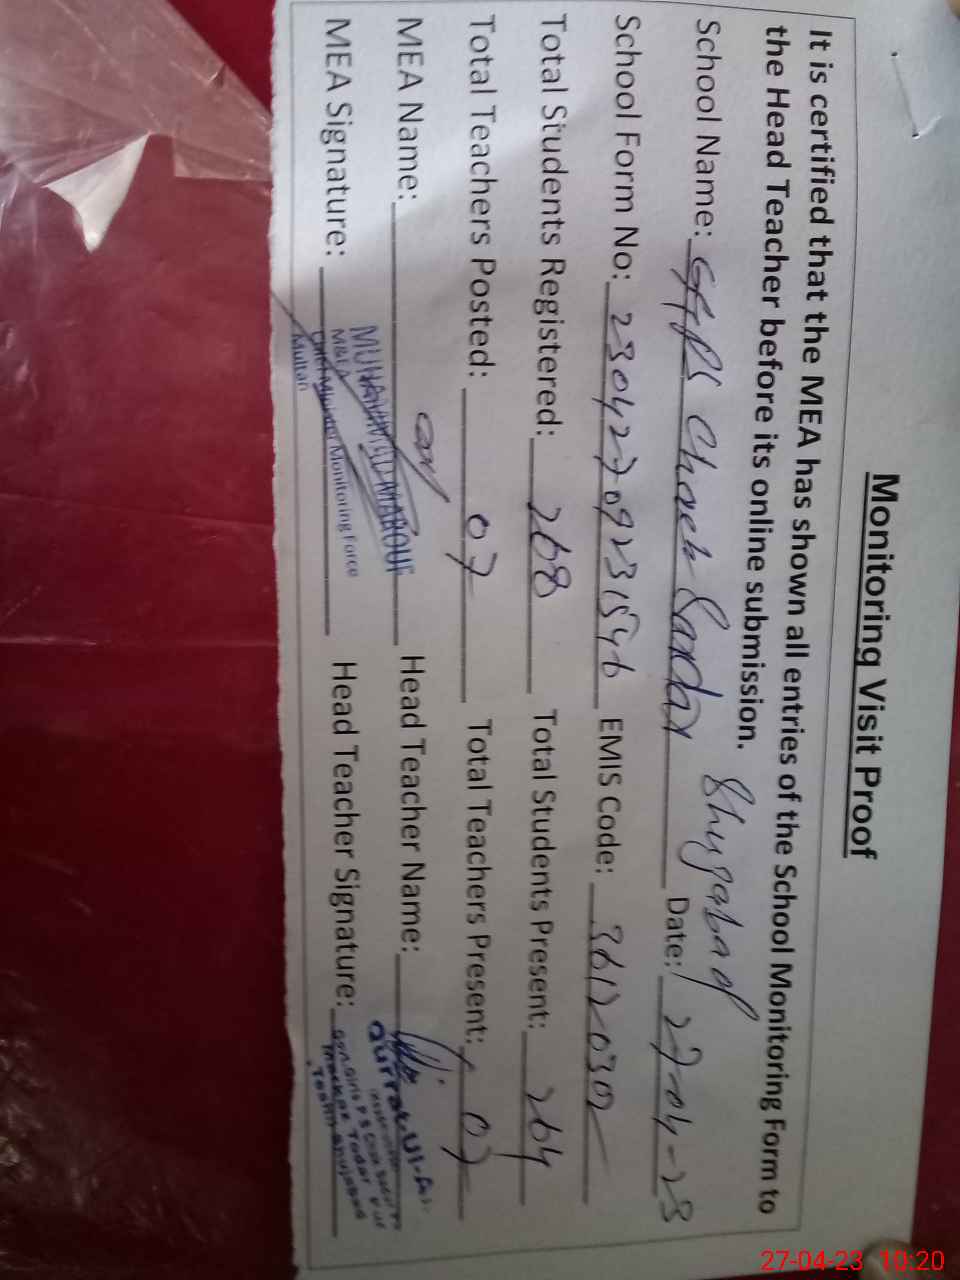 Monitoring Visit Proof
It is certified that the MEA has shown all entries of the School Monitoring Form to
the Head Teacher before its online submission.
School Name: GGPS Chack Sardar Shujabad Date: 27-04-23
School Form No: EMIS Code: 36120302
Total Students Registered: 268 Total Students Present: 264
Total Teachers Posted: 07 Total Teachers Present: 07
MEA Name: MUHAMMAD MAROUF Head Teacher Name: Qurrat-Ul-
MEA Signature: Head Teacher Signature:
M&EA
Chief Minister Monitoring Force
Multan
27-04-23 10:20